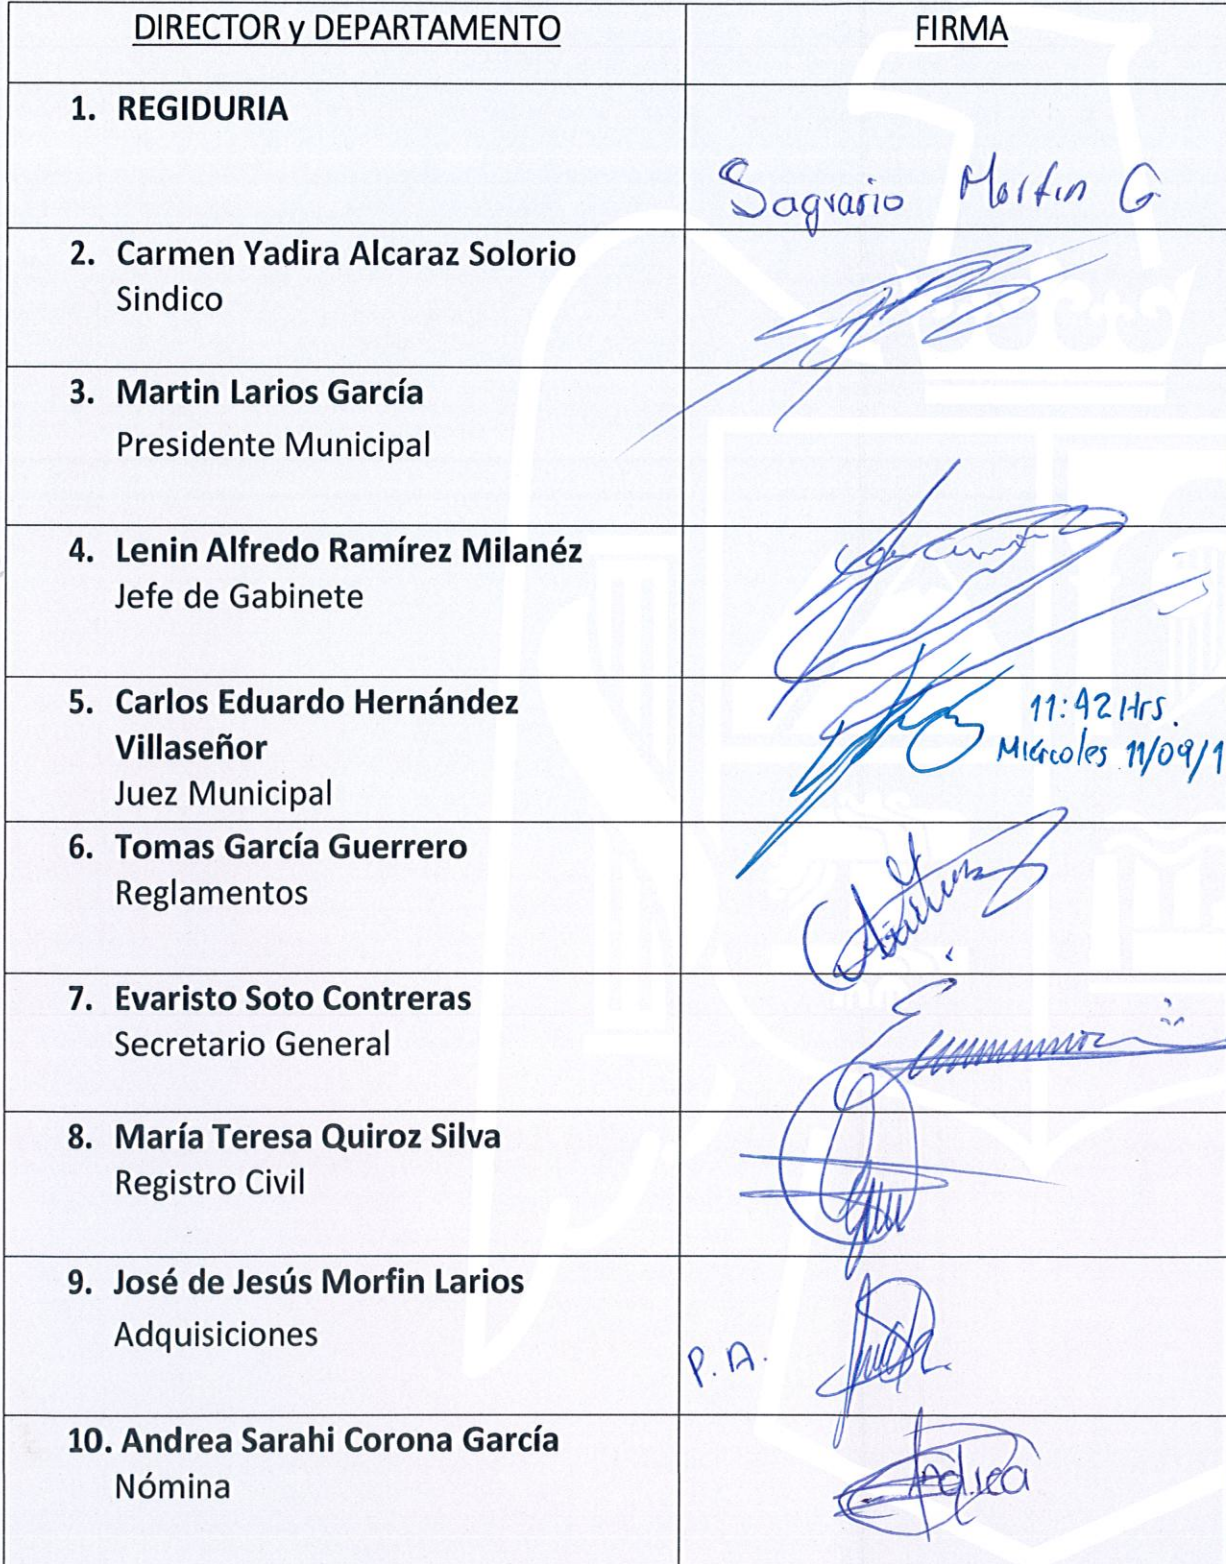 DIRECTOR y DEPARTAMENTO
FIRMA
1. REGIDURIA
Sagrario Martin G.
2. Carmen Yadira Alcaraz Solorio
Sindico
3. Martin Larios García
Presidente Municipal
4. Lenin Alfredo Ramírez Milanéz
Jefe de Gabinete
5. Carlos Eduardo Hernández
Villaseñor
Juez Municipal
11:42 Hrs.
Miércoles 11/09/1
6. Tomas García Guerrero
Reglamentos
7. Evaristo Soto Contreras
Secretario General
8. María Teresa Quiroz Silva
Registro Civil
9. José de Jesús Morfin Larios
Adquisiciones
P.A.
10. Andrea Sarahi Corona García
Nómina
Andrea